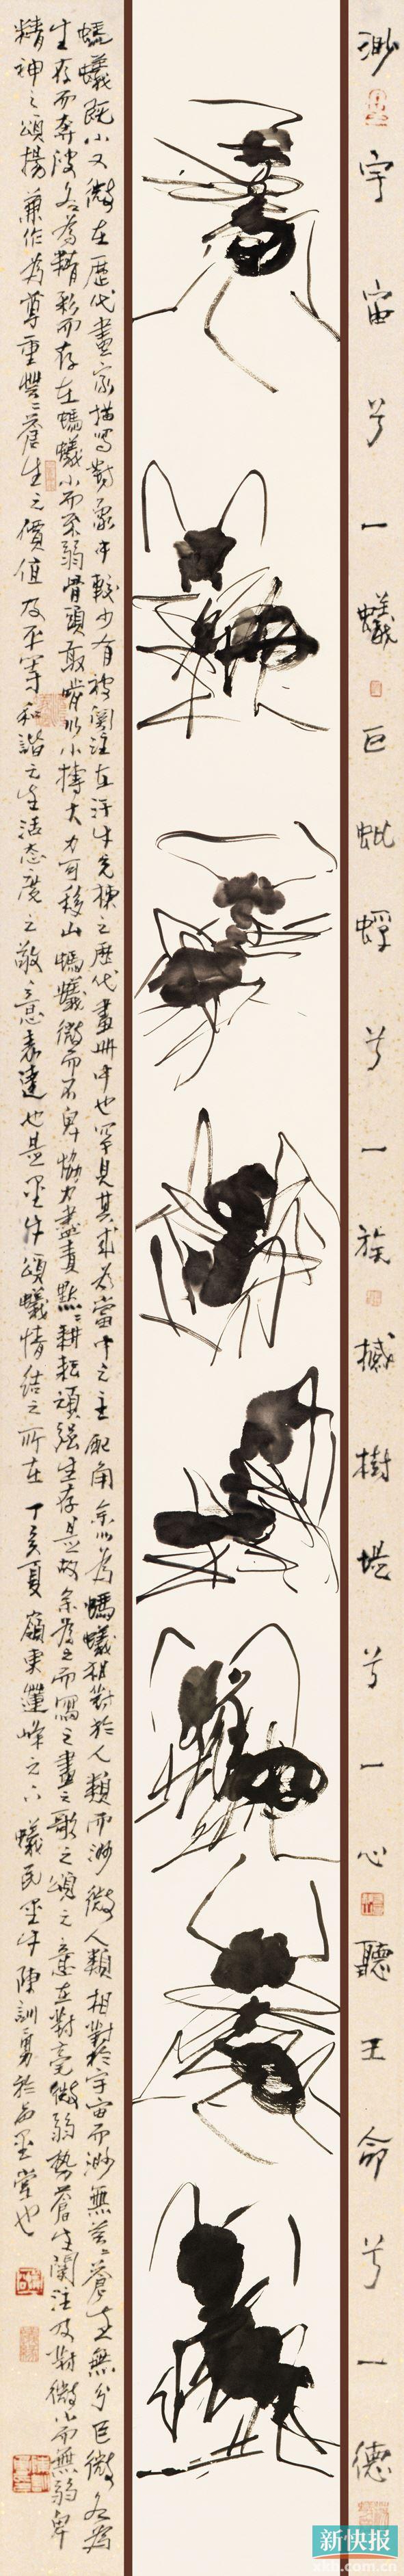 渺宇宙兮一蟻巨蚍蜉兮一族撼樹堤兮一心聽王命兮一德
螞蟻既小又微在歷代畫家描寫對象中較少有被關注在汗牛充棟之歷代畫冊中也罕見其或為當中之主配角余以為螞蟻相對於人類而渺微人類相對於宇宙而渺無蒼生無分巨微各為
生存而奔波各為精彩而存在螞蟻小而不弱骨頭敢啃以小摶大力可移山螞蟻微而不卑協力盡責默默耕耘頑強生存是故余為之而寫之畫之歌之頌之意在對毫微弱勢蒼生關注及對微小而無弱卑
精神之頌揚兼作為尊重蒼生之價值及平等和諧之生活态度之敬意表達也是墨牛頌蟻情結之所在 丁亥夏嶺東蓮峰之下蟻民墨牛陳訓勇於墨堂也
新快报
xkb.com.cn